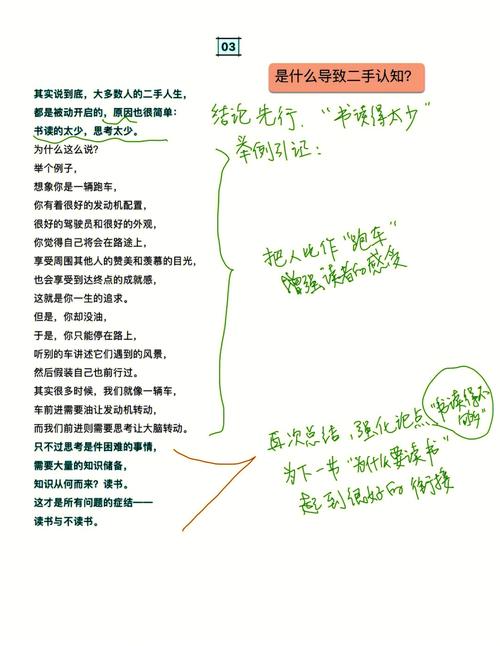 03
是什么导致二手认知?
其实说到底，大多数人的二手人生，
都是被动开启的，原因也很简单：
书读的太少，思考太少。
为什么这么说?
举个例子，
想象你是一辆跑车，
你有着很好的发动机配置，
很好的驾驶员和很好的外观，
你觉得自己将会在路途上，
享受周围其他人的赞美和羡慕的目光，
也会享受到达终点的成就感，
这就是你一生的追求。
但是，你却没油，
于是，你只能停在路上，
听别的车讲述它们遇到的风景，
然后假装自己也前行过。
其实很多时候，我们就像一辆车，
车前进需要油让发动机转动，
而我们前进则需要思考让大脑转动。
只不过思考是件困难的事情，
需要大量的知识储备，
知识从何而来？读书。
这才是所有问题的症结——
读书与不读书。
结论先行，“书读得太少”
举例引证：
把人比作“跑车”
增强读者的感受
再次总结，强化论点
“书读得不
够多”
为下一节“为什么要读书”
起到很好的衔接